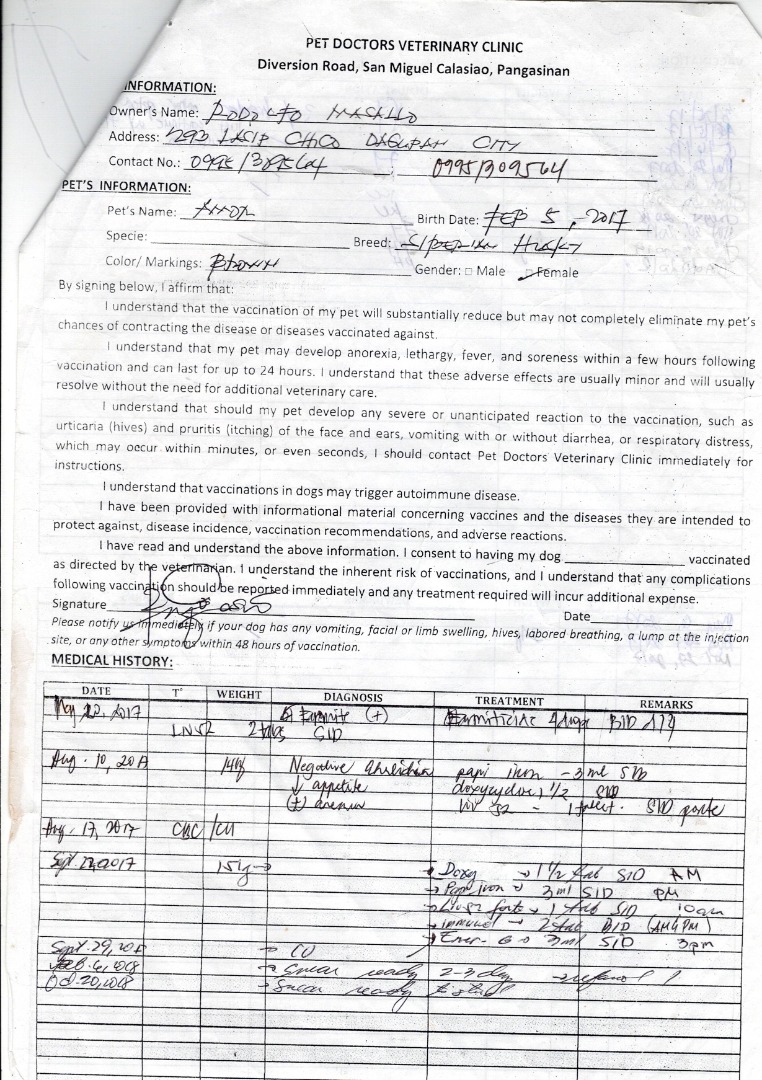 PET DOCTORS VETERINARY CLINIC
Diversion Road, San Miguel Calasiao, Pangasinan
INFORMATION:
Owner's Name: RODOLFO
Address: 293 CHICO DAGUPAN CITY
Contact No.: 0995 09951309564
PET'S INFORMATION:
Pet's Name: Birth Date: FEB 5, 2017
Specie: Breed: SIBERIAN HUSKY
Color/ Markings: BROWN Gender: □ Male □ Female
By signing below, I affirm that:
I understand that the vaccination of my pet will substantially reduce but may not completely eliminate my pet's
chances of contracting the disease or diseases vaccinated against.
I understand that my pet may develop anorexia, lethargy, fever, and soreness within a few hours following
vaccination and can last for up to 24 hours. I understand that these adverse effects are usually minor and will usually
resolve without the need for additional veterinary care.
I understand that should my pet develop any severe or unanticipated reaction to the vaccination, such as
urticaria (hives) and pruritis (itching) of the face and ears, vomiting with or without diarrhea, or respiratory distress,
which may occur within minutes, or even seconds, I should contact Pet Doctors Veterinary Clinic immediately for
instructions.
I understand that vaccinations in dogs may trigger autoimmune disease.
I have been provided with informational material concerning vaccines and the diseases they are intended to
protect against, disease incidence, vaccination recommendations, and adverse reactions.
I have read and understand the above information. I consent to having my dog vaccinated
as directed by the veterinarian. I understand the inherent risk of vaccinations, and I understand that any complications
following vaccination should be reported immediately and any treatment required will incur additional expense.
Signature Date
Please notify us immediately if your dog has any vomiting, facial or limb swelling, hives, labored breathing, a lump at the injection
site, or any other symptoms within 48 hours of vaccination.
MEDICAL HISTORY:
DATE T° WEIGHT DIAGNOSIS TREATMENT REMARKS
2017 (+) BID
2 tabs SID
Aug. 10, 2017 14kg Negative papi iron - 3 ml SID
↓ appetite 1/2 SID
(+) anemia LIV 52 - SID
Aug. 17, 2017 CBC
Sept. 2017 15kg → Doxy → 1 1/2 tab SID AM
→ Papi iron → 3 ml SID PM
→ Liver forte → 1 tab SID 10am
→ Immunol → 2 tab BID (AM & PM)
→ 3 ml SID 3pm
Sept. 29, → CU
→ Smear ready 2-3 day
Oct. 20, → Smear ready